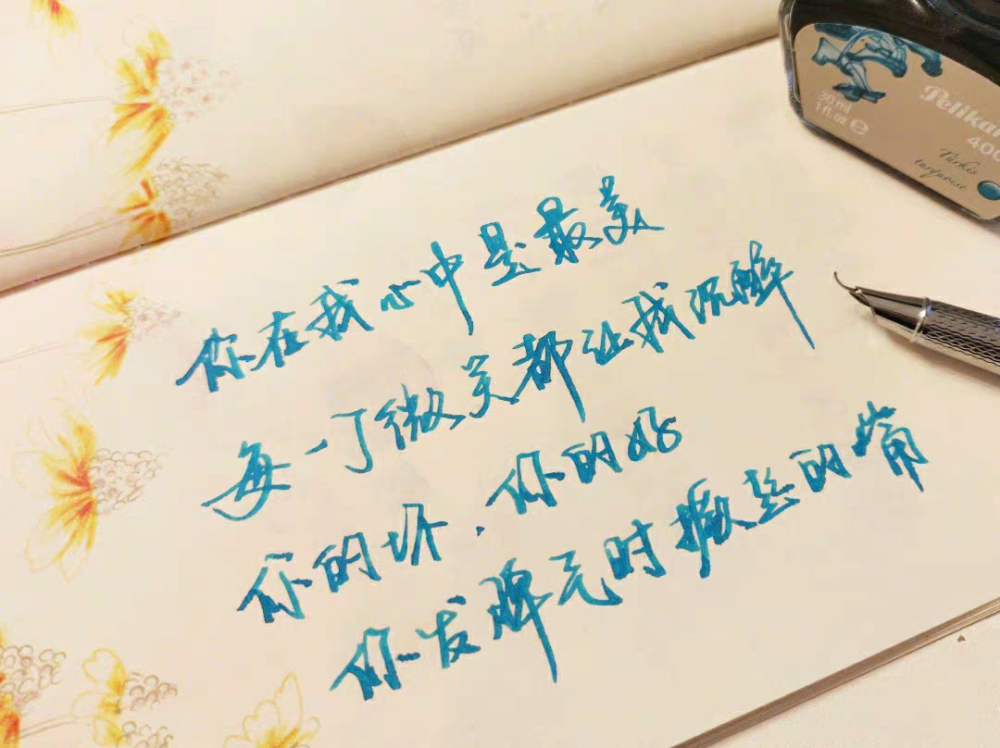 你在我心中是最美
每一个微笑都让我沉醉
你的坏、你的好
你发脾气时撅起的嘴
Pelikan
400
30 ml
1 fl oz e
Türkis
turquoise